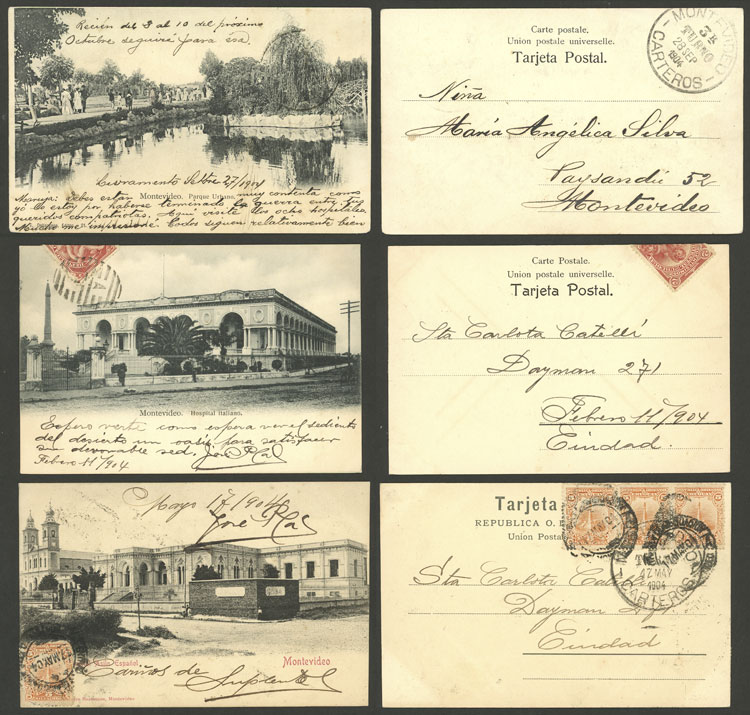 Recien del 8 al 10 del próximo
Octubre seguiré para esa.
Livramento Setbre 27/1904
Montevideo. Parque Urbano.
Maruja: debes estar muy contenta como
yo lo estoy por haberse terminado la guerra entre
queridos compatriotas. Aquí visité los ocho hospitales.
Mucho me impresioné. Todos siguen relativamente bien
Carte postale.
Union postale universelle.
Tarjeta Postal.
MONTEVIDEO
3r
TURNO
28 SEP
1904
CARTEROS
Niña
María Angélica Silva
Paysandú 52
Montevideo
Montevideo. Hospital Italiano.
Espero verte como espera ver el sediento
del desierto un oasis para satisfacer
su devorable sed. José
Febero 11/904
Carte Postale.
Union postale universelle.
Tarjeta Postal.
Sta Carlota Catelli
Dayman 271
Febrero 11/904
Ciudad.
Mayo 17/904
José
Español
Montevideo
Cariños de
Carlota
Tarjeta
REPUBLICA O.
Union Postal
Sta Carlota
Dayman
Ciudad
12 MAY
1904
CARTEROS